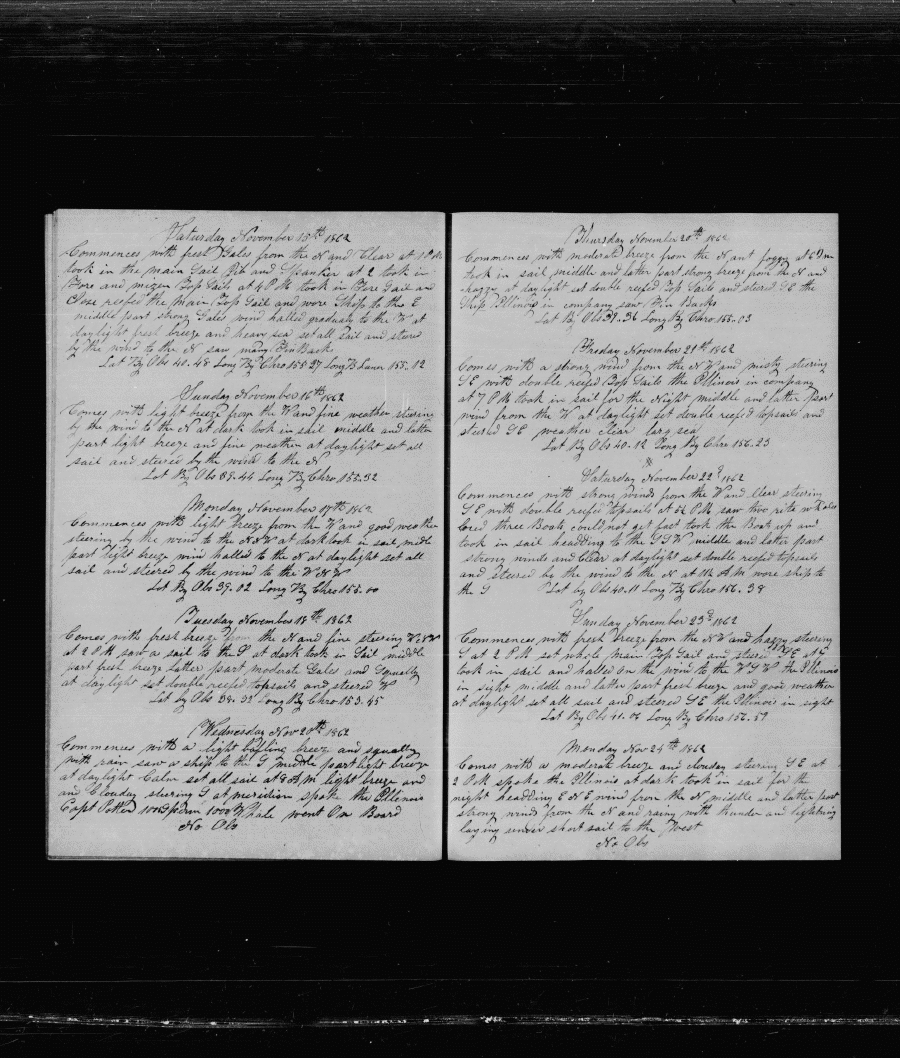 Saturday November 15th 1862
Commences with fresh Gales from the N and Clear at 1 P M
took in the main Sail Jib and Spanker at 2 took in
Fore and mizen Top Sails at 4 P M took in Fore Sail and
Close reefed the Main Top Sail and wore Ship to the E
middle part strong Gales wind halled gradualy to the W at
daylight fresh breeze and heavy sea set all Sail and steered
by the wind to the N saw many Fin Back
Lat By Obs 40.48 Long By Chro 155.27 Long B Lunar 155.12
Sunday November 16th 1862
Comes with light breeze from the W and fine weather steering
by the wind to the N at dark took in sail middle and latter
part light breeze and fine weather at daylight set all
sail and steered by the wind to the N
Lat By Obs 39.44 Long By Chro 155.32
Monday November 17th 1862
Commences with light breeze from the W and good weather
steering by the wind to the NNW at dark took in sail midle
part light breeze wind halled to the N at daylight set all
sail and steered by the wind to the WNW
Lat By Obs 39.02 Long By Chro 155.00
Tuesday November 18th 1862
Comes with fresh breeze from the N and fine steering WNW
at 2 P M saw a sail to the S at dark took in Sail middle
part fresh breeze Latter part moderate Gales and Squally
at daylight set double reefed topsails and steered W
Lat by Obs 38.32 Long By Chro 153.45
Wednesday Nov 20th 1862
Commences with a light baffling breeze and squally
with rain saw a ship to the S middle part light breeze
at daylight Calm set all sail at 8 A M light breeze and
and Clouday steering S at meridien spoke the Illinois
Capt Potter 100 Sperm 1000 Whale went On Board
No Obs
Thursday November 20th 1862
Commences with moderate breeze from the N ant foggy at 6 P m
took in sail middle and latter part strong breeze from the N and
hazy at daylight set double reefed Top Sails and steered SE the
Ship Illinois in company saw Fin Backs
Lat By Obs 39.36 Long By Chro 155.03
Friday November 21st 1862
Comes with a strong wind from the NW and misty steering
SE with double reefed Top Sails the Illinois in company
at 7 P M took in sail for the Night middle and latter part
wind from the W at daylight set double reefed topsails and
steered SE weather clear larg sea
Lat By Obs 40.12 Long By Chro 156.23
Saturday November 22d 1862
Commences with strong winds from the W and Clear steering
SE with double reefed topsails at P M saw two rite whales
lored three Boats could not get fast took the Boats up and
took in sail headding to the SSW middle and latter part
strong winds and Clear at daylight set double reefed topsails
and Steered by the wind to the N at 11½ A M wore ship to
the S Lat by Obs 40.11 Long By Chro 156.38
Sunday November 23d 1862
Commences with fresh breeze from the NW and hazzy steering
S at 2 P M set whole main Top Sail and steered at 5
took in sail and halled on the wind to the WSW the Illinois
in sight middle and latter part fresh breeze and good weather
at daylight set all sail and steered SE the Illinois in sight
Lat By Obs 41.06 Long By Chro 156.59
Monday Nov 24th 1862
Comes with a moderate breeze and clouday steering SE at
2 P M spoke the Illinois at dark took in sail for the
night headding ENE wind from the N middle and latter part
strong winds from the N and rainy with thunder and lightning
laying under short sail to the West
No Obs